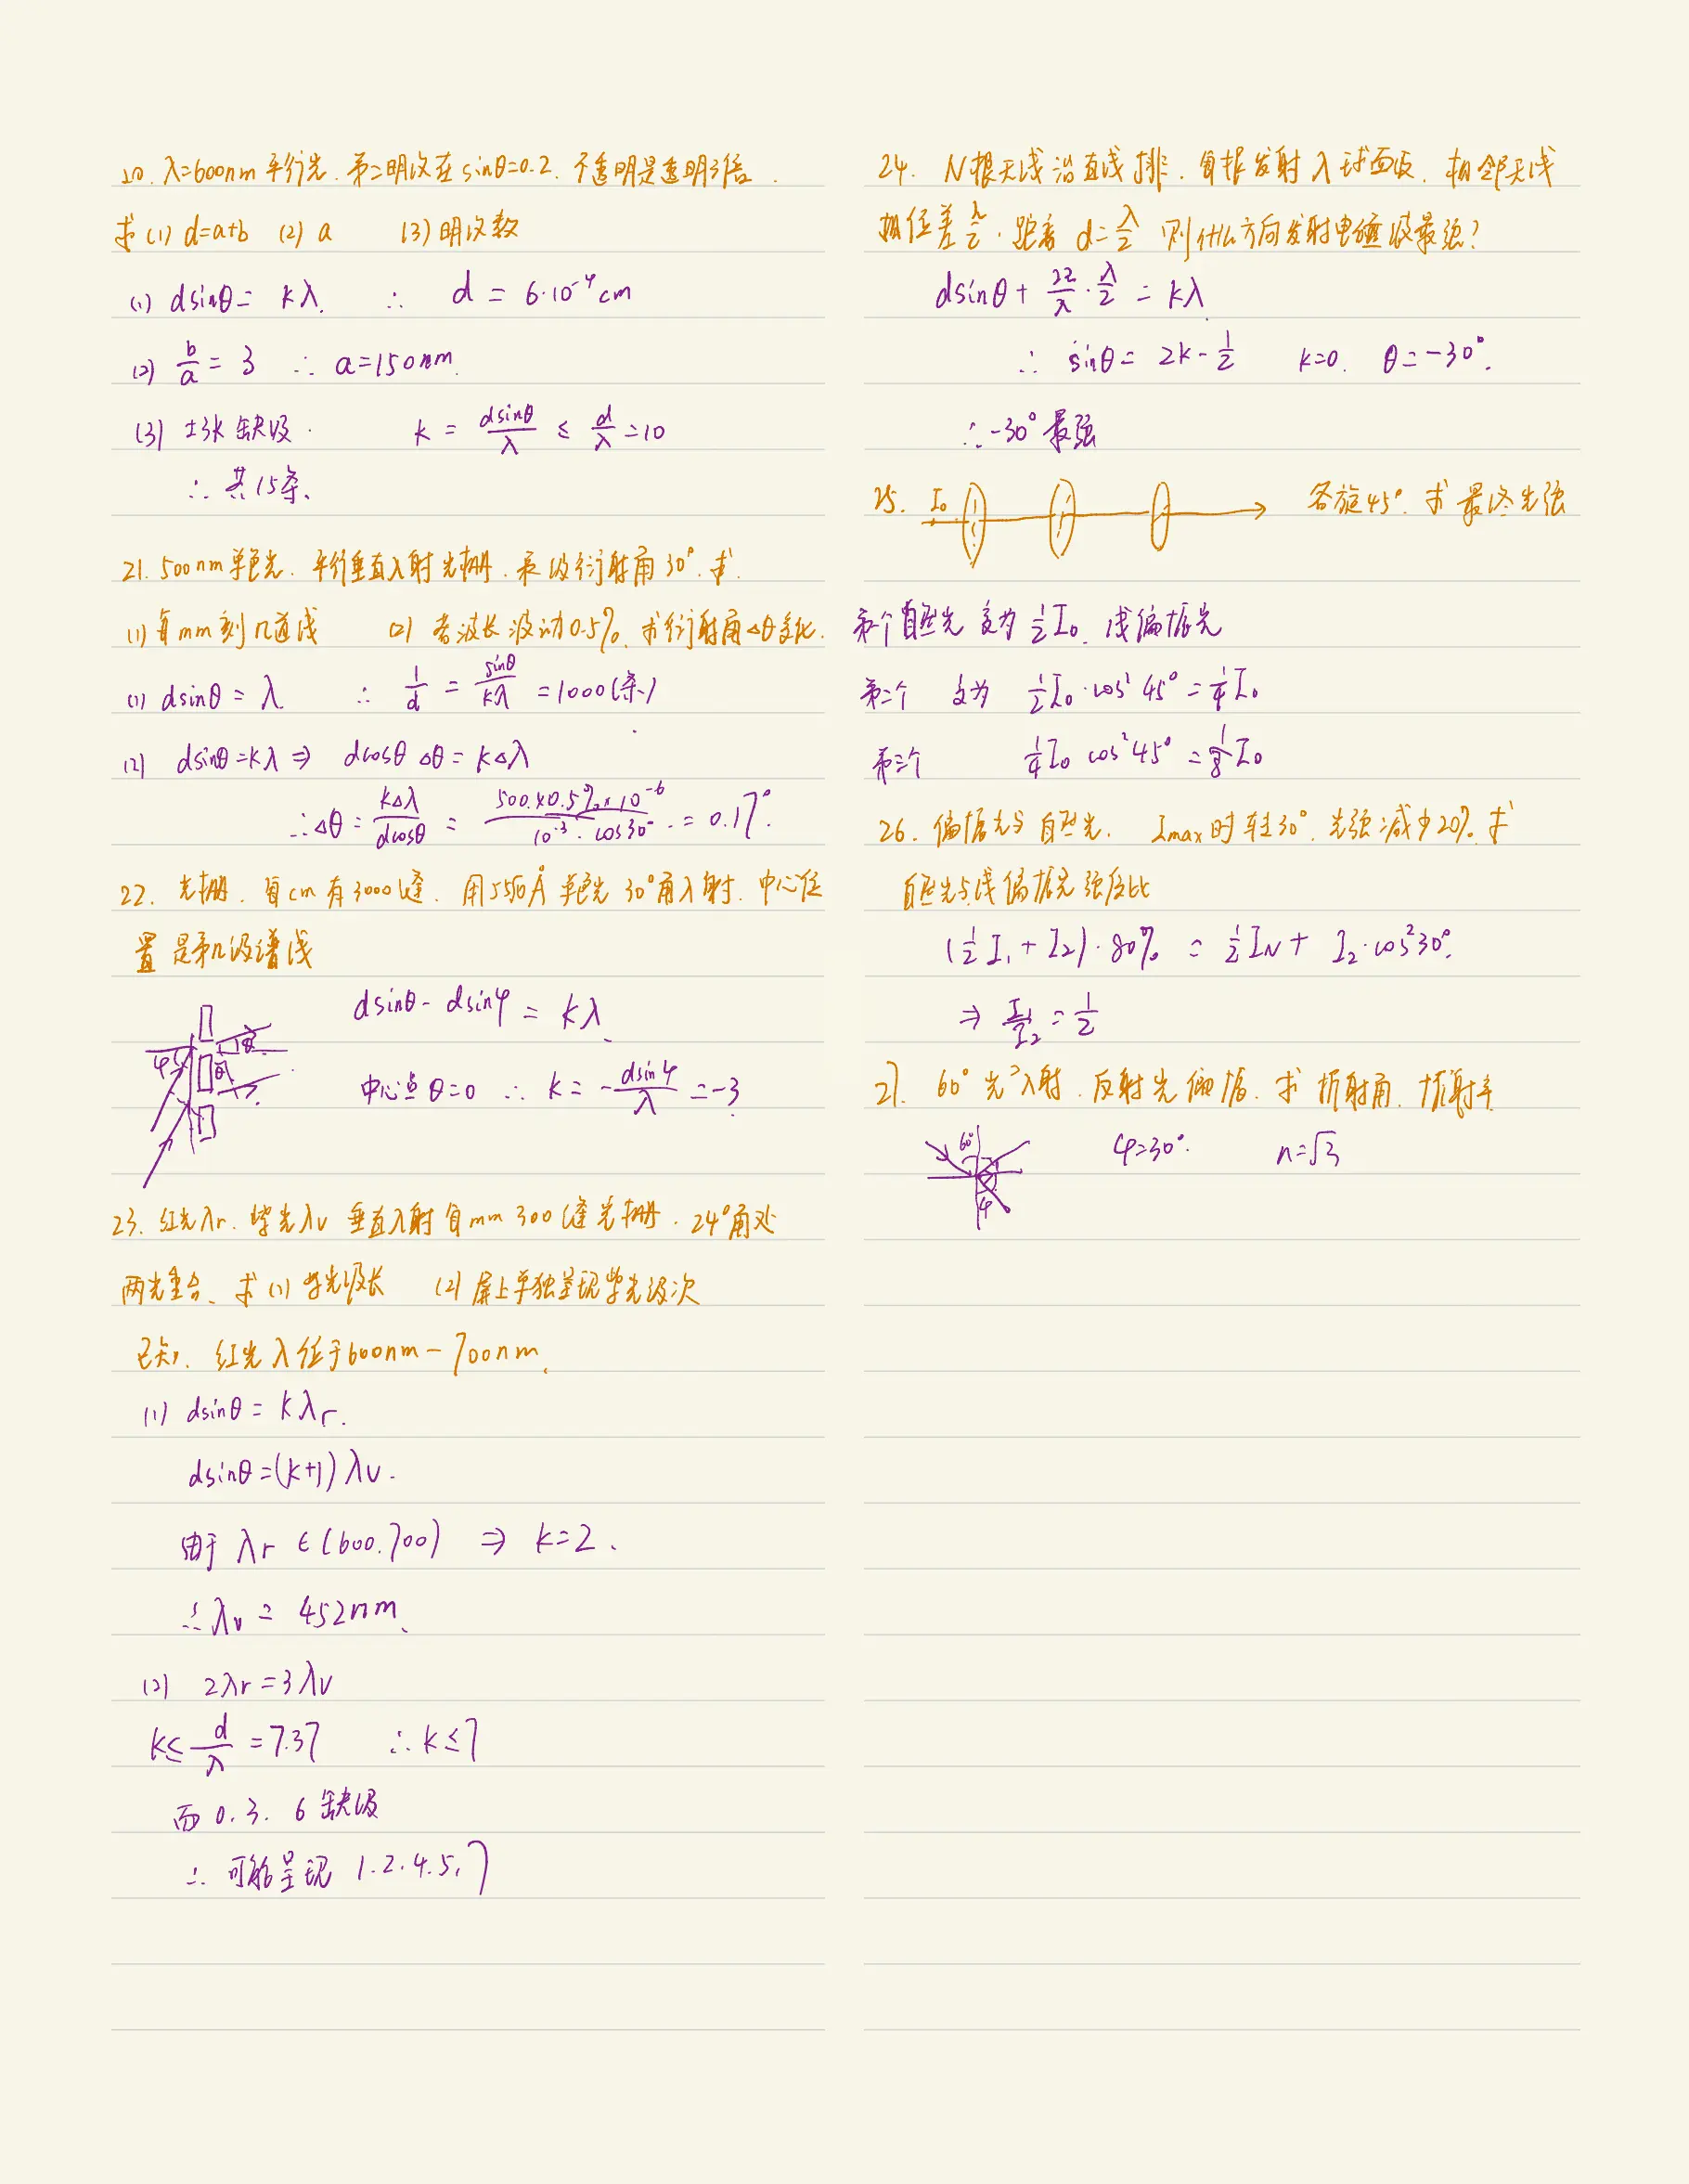 20. λ=600nm 平行光. 第二明纹在 sinθ=0.2. 不透明是透明3倍.
求 (1) d=a+b (2) a (3) 明纹数
(1) dsinθ= kλ. ∴ d = 6·10⁻⁴cm
(2) b/a = 3 ∴ a=150nm.
(3) ±3k 缺级. k = dsinθ/λ ≤ d/λ =10
∴ 共15条.
21. 500nm 单色光. 平行垂直入射光栅. 衍射角 30°. 求.
(1) 每mm刻几道线 (2) 若波长波动0.5%. 求衍射角Δθ变化.
(1) dsinθ = λ ∴ 1/d = sinθ/kλ = 1000(条)
(2) dsinθ=kλ ⇒ dcosθ Δθ = kΔλ
∴ Δθ = kΔλ/dcosθ = 500×0.5%×10⁻⁶/10⁻³·cos30° = 0.17°.
22. 光栅. 每cm有3000缝. 用Å单色光 30°角入射. 中心位
置是第几级谱线
dsinθ- dsinφ = kλ
φ θ
中心点 θ=0 ∴ k = - dsinφ/λ = -3
23. 红光λr. 紫光λv 垂直入射每mm 300缝光栅. 24°角处
两光重合. 求 (1) 紫光波长 (2) 屏上单独呈现紫光级次
已知. 红光λ位于600nm-700nm.
(1) dsinθ = kλr.
dsinθ=(k+1)λv.
由于 λr ∈(600.700) ⇒ k=2.
∴ λv = 452nm.
(2) 2λr=3λv
k≤ d/λ =7.37 ∴ k≤7
而 0. 3. 6 缺级
∴ 可能呈现 1.2.4.5.7
24. N根天线沿直线排. 每根发射入球面波. 相邻天线
相位差 π/2. 距离 d=λ/2 则什么方向发射电磁波最强?
dsinθ + 2π/λ · λ/2 = kλ
∴ sinθ= 2k- 1/2 k=0. θ=-30°.
∴ -30°最强
25. I₀ 各旋45°. 求最终光强
第个自然光变为 ½I₀ 线偏振光
第二个 变为 ½I₀·cos²45°=¼I₀
第三个 ¼I₀ cos²45°=⅛I₀
26. 偏振光与自然光. Imax时转30°. 光强减少20%. 求
自然光与线偏振光强度比
(½I₁+I₂)·80% = ½IN + I₂·cos²30°.
⇒ I₁/I₂ = 1/2
27. 60°光入射. 反射光偏振. 求折射角. 折射率
60° φ φ=30°. n=√3